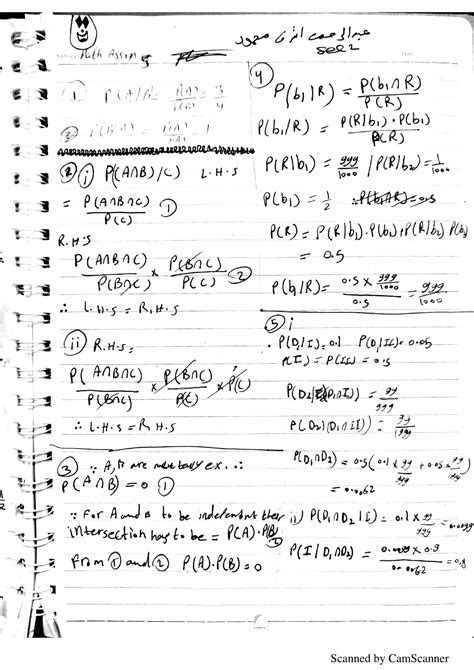 عبدالرحمن اشرف محمود
sec 2
Math Assign 5
① P(A/B) = P(A)/P(B) = 3/4
② P(B/A) = P(A)/P(A) = 1
② i P(A∩B)/C) L.H.S
= P(A∩B∩C)/P(C) ①
R.H.S
P(A∩B∩C)/P(B∩C) × P(B∩C)/P(C) ②
∴ L.H.S = R.H.S
ii R.H.S:
P(A∩B∩C)/P(B∩C) × P(B∩C)/P(C) × P(C)
∴ L.H.S = R.H.S
③ ∵ A,B are mutually ex. ∴
P(A∩B) = 0 ①
∵ For A and B to be independent their
intersection has to be = P(A).P(B) ②
From ① and ② P(A).P(B) = 0
④
P(b₁|R) = P(b₁∩R)/P(R)
P(b₁/R) = P(R|b₁).P(b₁)/P(R)
P(R|b₁) = 999/1000 / P(R|b₂) = 1/1000
P(b₁) = 1/2
P(R) = P(R|b₁).P(b₁)+P(R|b₂).P(b₂)
= 0.5
P(b₁/R) = 0.5 × 999/1000 / 0.5 = 999/1000
⑤ i
. P(D₁/I) = 0.1 P(D₁/II) = 0.05
P(I) = P(II) = 0.5
P(D₂|D₁∩I) = 99/999
P(D₂|D₁∩II) = 99/1999
P(D₁∩D₂) = 0.5(0.1 × 99/999 + 0.05 × 99/1999)
= 0.0062
ii) P(D₁∩D₂|I) = 0.1 × 99/999 = 0.0099
P(I|D₁∩D₂) = 0.0099 × 0.5 / 0.0062 = 0.8
Scanned by CamScanner